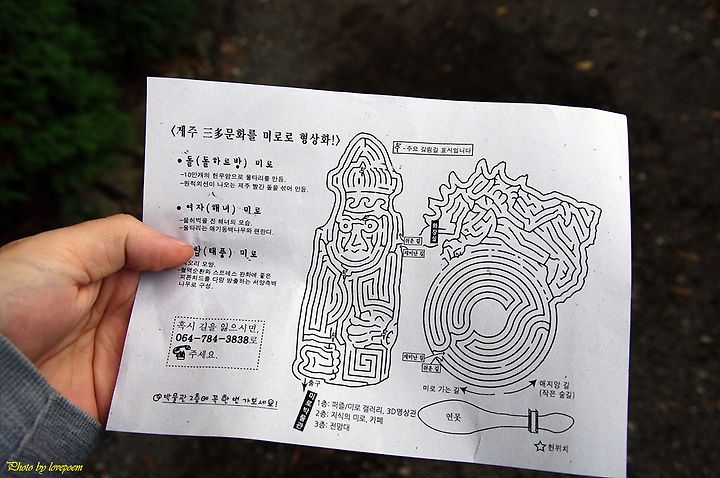 <제주 三多문화를 미로로 형상화!>
• 돌(돌하르방) 미로
-10만개의 현무암으로 울타리를 만듬.
-원적외선이 나오는 제주 빨간 돌을 섞어 만듬.
• 여자(해녀) 미로
-물허벅을 진 해녀의 모습.
-울타리는 애기동백나무와 랜란디.
람(태풍) 미로
오리 모양.
-혈액순환과 스트레스 완화에 좋은
피톤치드를 다량 방출하는 서양측백
나무로 구성.
혹시 길을 잃으시면,
064-784-3838로
주세요.
박물관 2층에 꼭 한번 가보세요!
-주요 갈림길 표시입니다
쉬운 길
재미난 길
재미난 길
쉬운 길
출구
미로박물관
1층: 퍼즐/미로 갤러리, 3D영상관
2층: 지식의 미로, 카페
3층: 전망대
미로 가는 길
애지앙 길
(작은 숲길)
연못
☆현위치
Photo by lovepoem